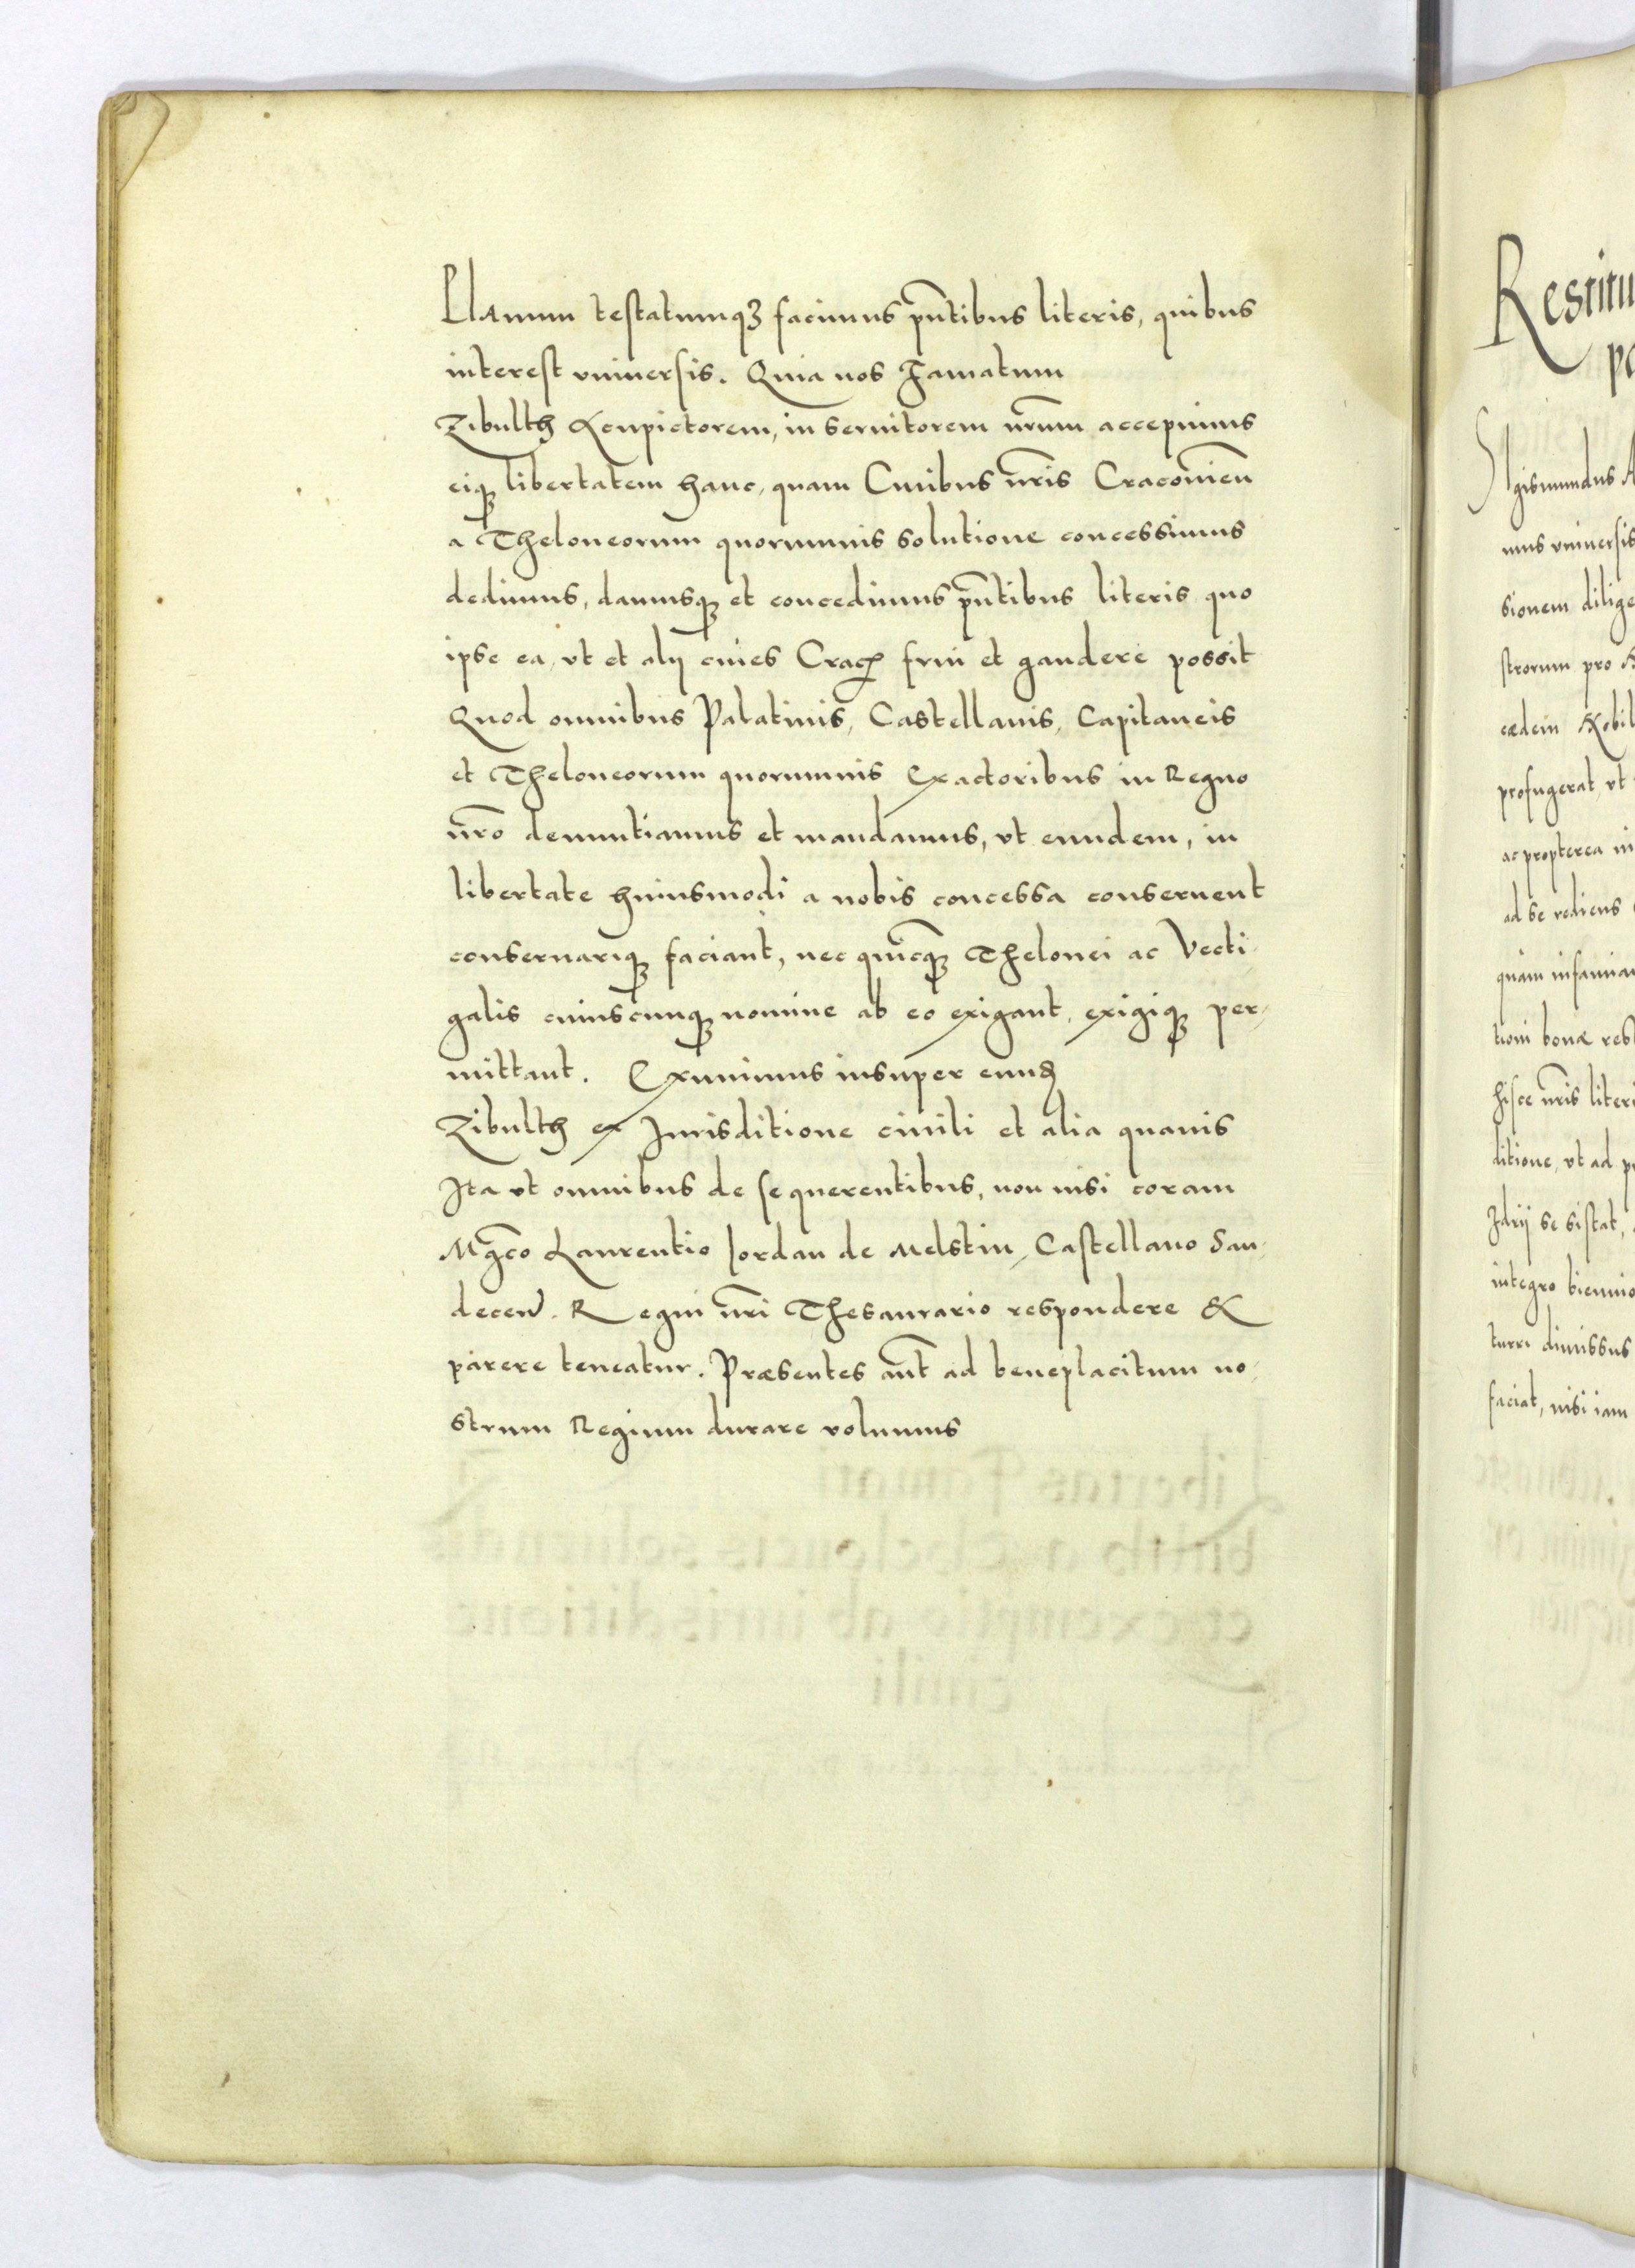 Planum testatumqȝ facimus pn̄tibus literis, quibus
interest vniuersis. Quia nos Famatum
Zibulth Acupictorem, in seruitorem nr̄um accepimus
eiqȝ libertatem hanc, quam Ciuibus nr̄is Cracouien̄
a Theloneorum quorumuis solutione concessimus
dedimus, damusqȝ et concedimus pn̄tibus literis quo
ipse ea, vt et alij ciues Crac frui et gaudere possit
Quod omnibus Palatinis, Castellanis, Capitaneis
et Theloneorum quorumuis Exactoribus in Regno
nr̄o denuntiamus et mandamus, vt eundem, in
libertate huiusmodi a nobis concessa conseruent
conseruariqȝ faciant, nec quicqȝ Thelonei ac Vecti-
galis cuiuscunqȝ nomine ab eo exigant, exigiqȝ per-
mittant. Eximimus insuper eund
Zibulth ex Jurisditione ciuili et alia quauis
Ita vt omnibus de se querentibus, non nisi coram
Mgc̄o Laurentio Jordan de Melstin, Castellano San-
decen. Regni nr̄i Thesaurario respondere &
parere teneatur. Præsentes aut̄ ad beneplacitum no-
strum Regium durare volumus
Restitu
Sigismundus A
mus vniuersis
sionem dilige
strorum pro
eadem Nobil
profugerat, vt
ac propterea in
ad se rediens
quam infamia
tioni bonæ rest
hisce nr̄is liter
ditione, vt ad p
Idrij se sistat,
integro biennio
turri dimissus
faciat, nisi iam